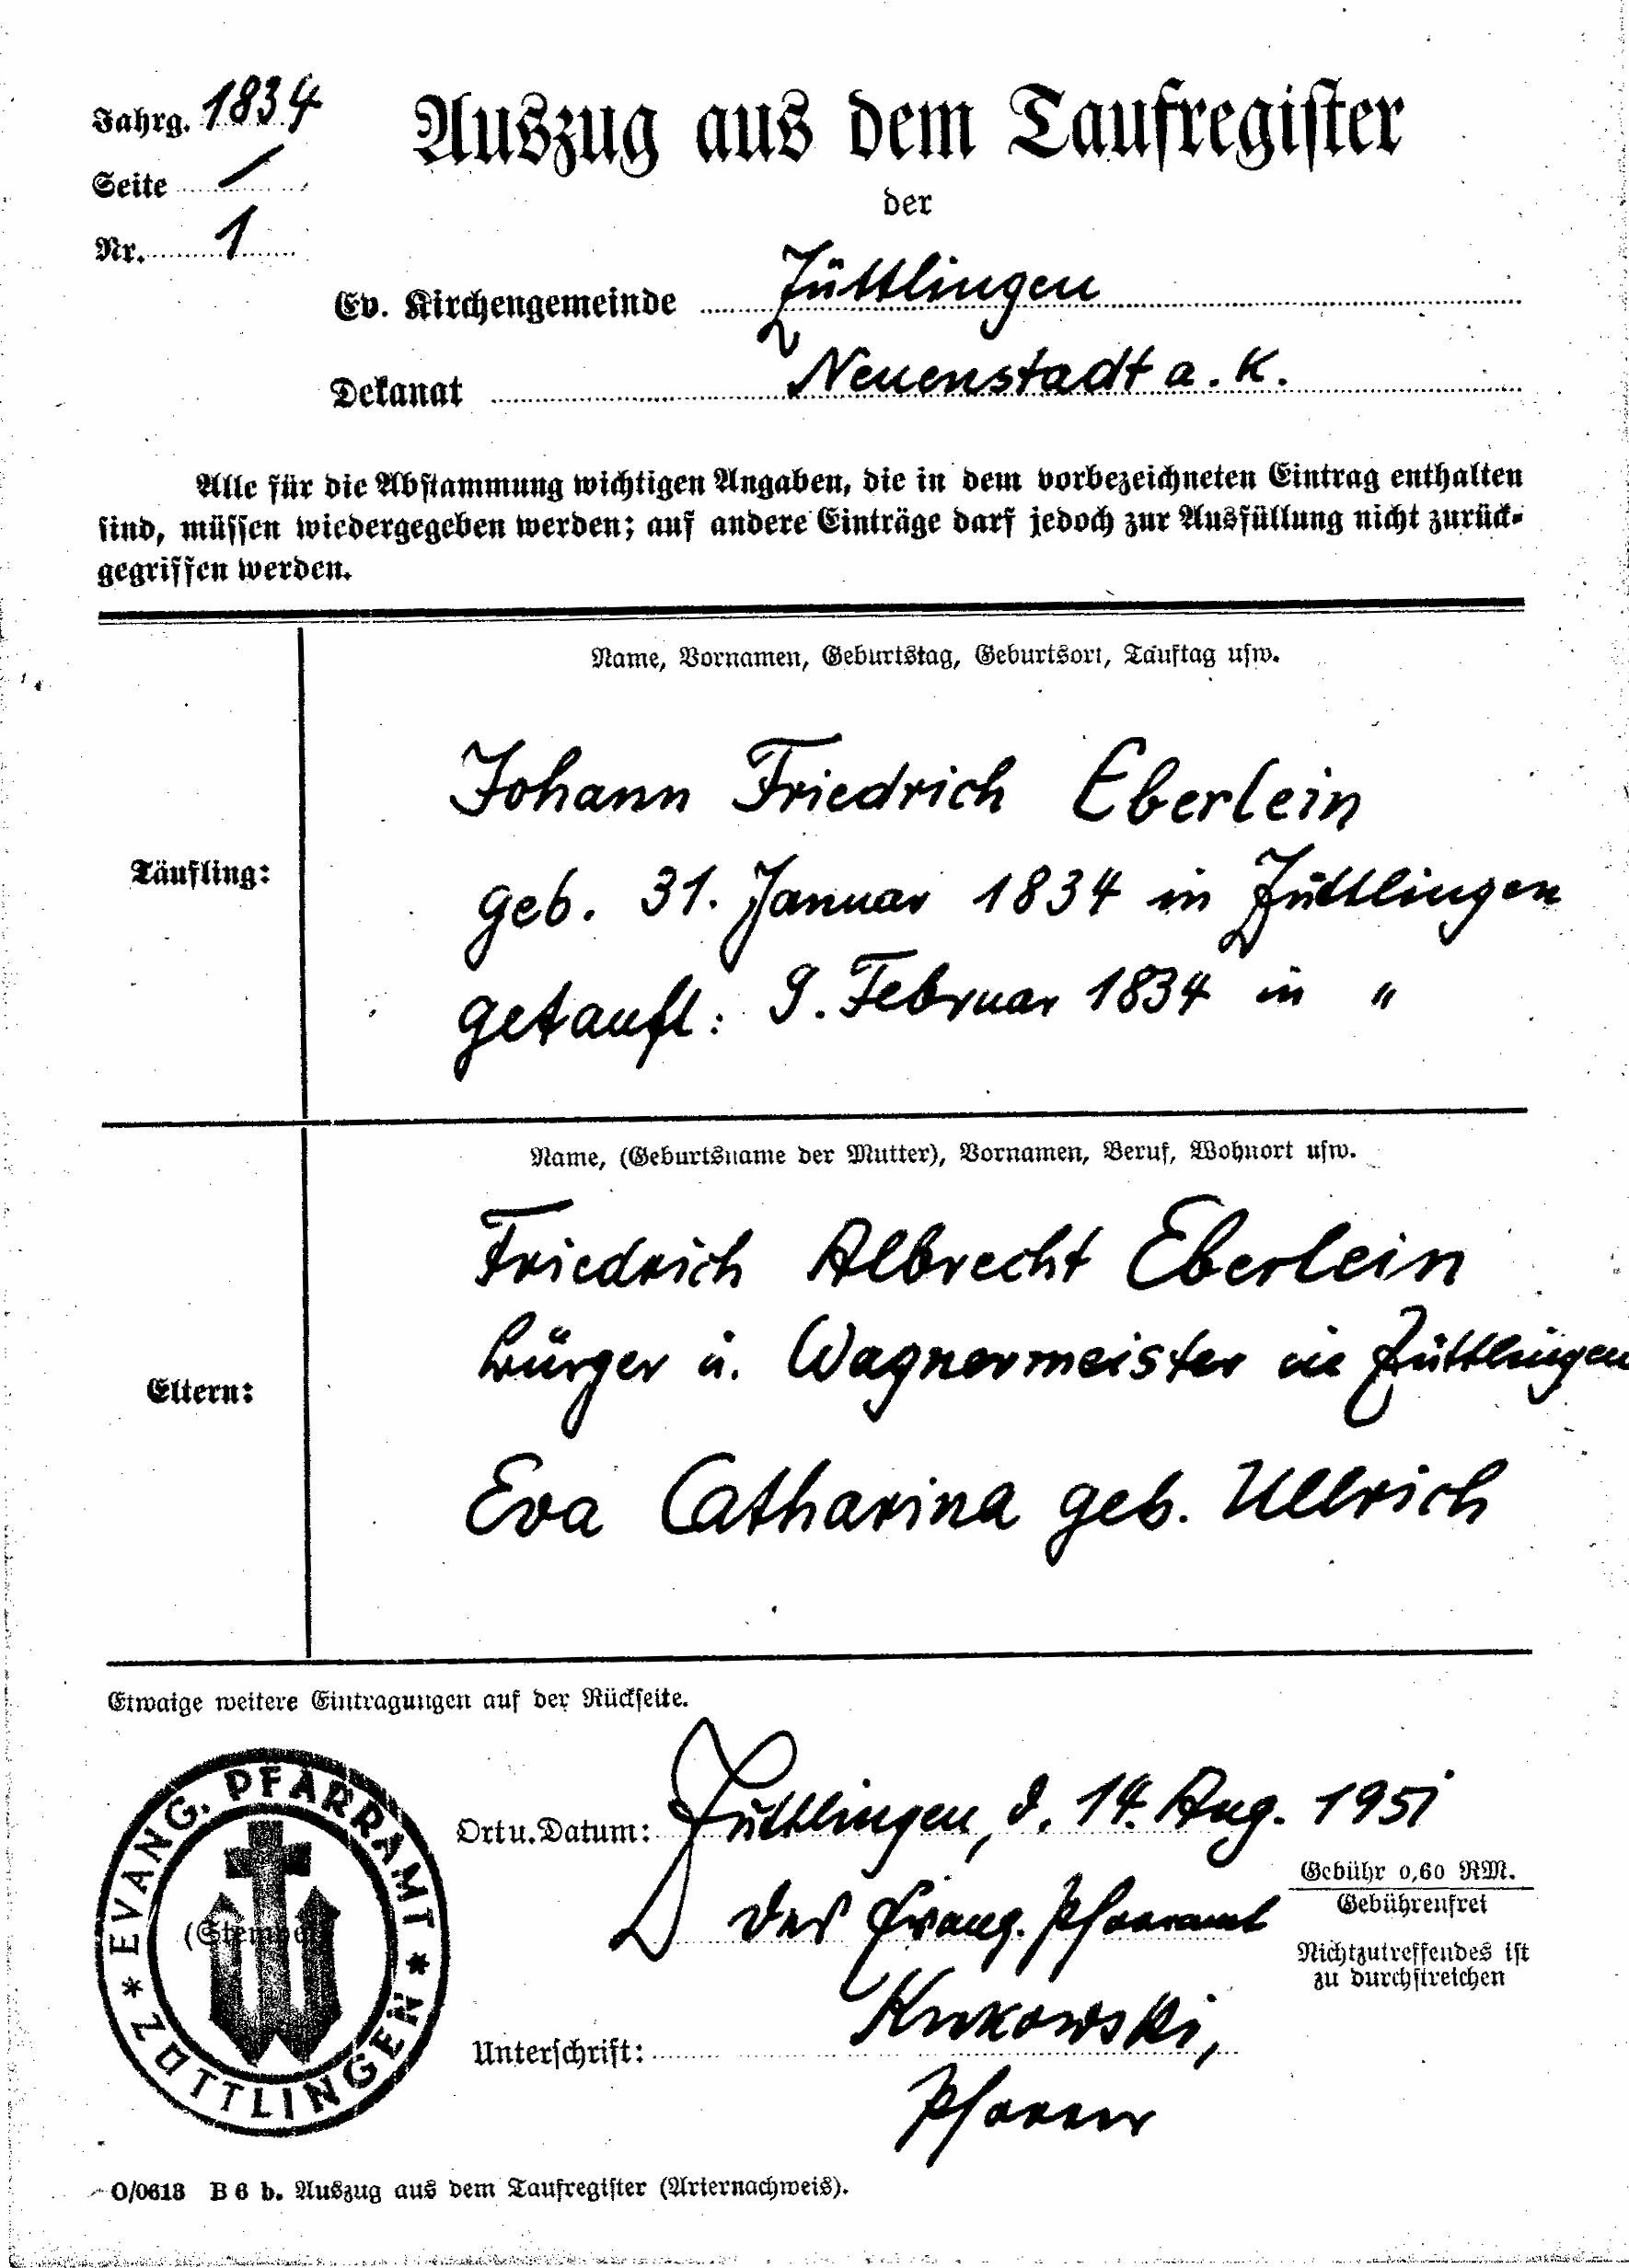 Jahrg. 1834
Seite /
Nr. 1
Auszug aus dem Taufregister
der
Ev. Kirchengemeinde Züttlingen
Dekanat Neuenstadt a. K.
Alle für die Abstammung wichtigen Angaben, die in dem vorbezeichneten Eintrag enthalten
sind, müssen wiedergegeben werden; auf andere Einträge darf jedoch zur Ausfüllung nicht zurück-
gegriffen werden.
Name, Vornamen, Geburtstag, Geburtsort, Tauftag usw.
Täufling:
Johann Friedrich Eberlein
geb. 31. Januar 1834 in Züttlingen
getauft: 9. Februar 1834 in "
Name, (Geburtsname der Mutter), Vornamen, Beruf, Wohnort usw.
Eltern:
Friedrich Albrecht Eberlein
Bürger u. Wagnermeister in Züttlingen
Eva Catharina geb. Ullrich
Etwaige weitere Eintragungen auf der Rückseite.
EVANG. PFARRAMT * ZÜTTLINGEN *
(Stempel)
Ort u. Datum: Züttlingen, d. 14. Aug. 1951
Gebühr 0,60 RM.
Gebührenfrei
Nichtzutreffendes ist
zu durchstreichen
Das Evang. Pfarramt
Unterschrift: Krukowski,
Pfarrer
O/0613 B 6 b. Auszug aus dem Taufregister (Ariernachweis).